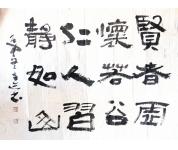 賢者虛
懷若谷
仁人習
靜如山